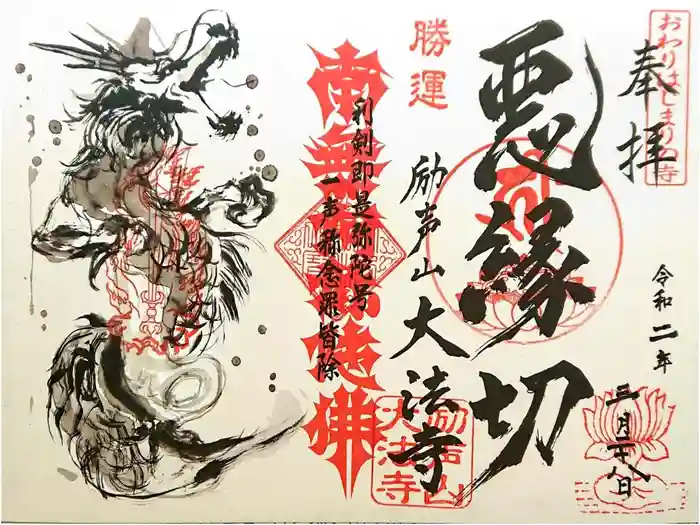 おわりはじまりの寺
奉拝
令和二年
三月二十八日
悪縁切
勝運
励声山 大法寺
励声山
大法寺
南無阿弥陀佛
利剣即是弥陀号
一声称念罪皆除